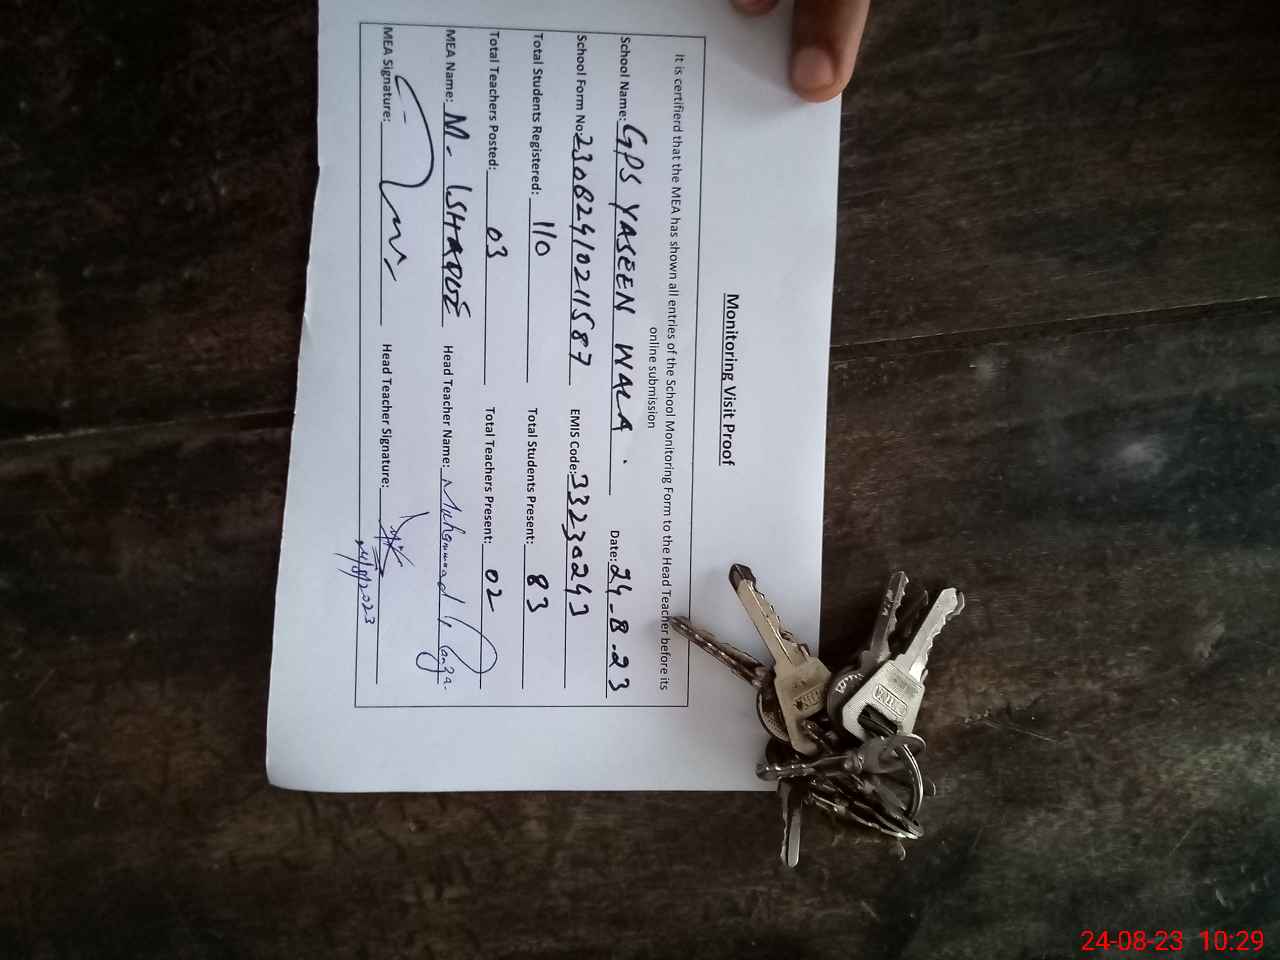 Monitoring Visit Proof
It is certifierd that the MEA has shown all entries of the School Monitoring Form to the Head Teacher before its
online submission
School Name: GPS YASEEN WALA. Date: 24-8-23
School Form No: 23082410211587 EMIS Code: 33230243
Total Students Registered: 110 Total Students Present: 83
Total Teachers Posted: 03 Total Teachers Present: 02
MEA Name: M- ISHAQUE Head Teacher Name: Muhammad
MEA Signature: Head Teacher Signature:
24/8/2023
24-08-23 10:29